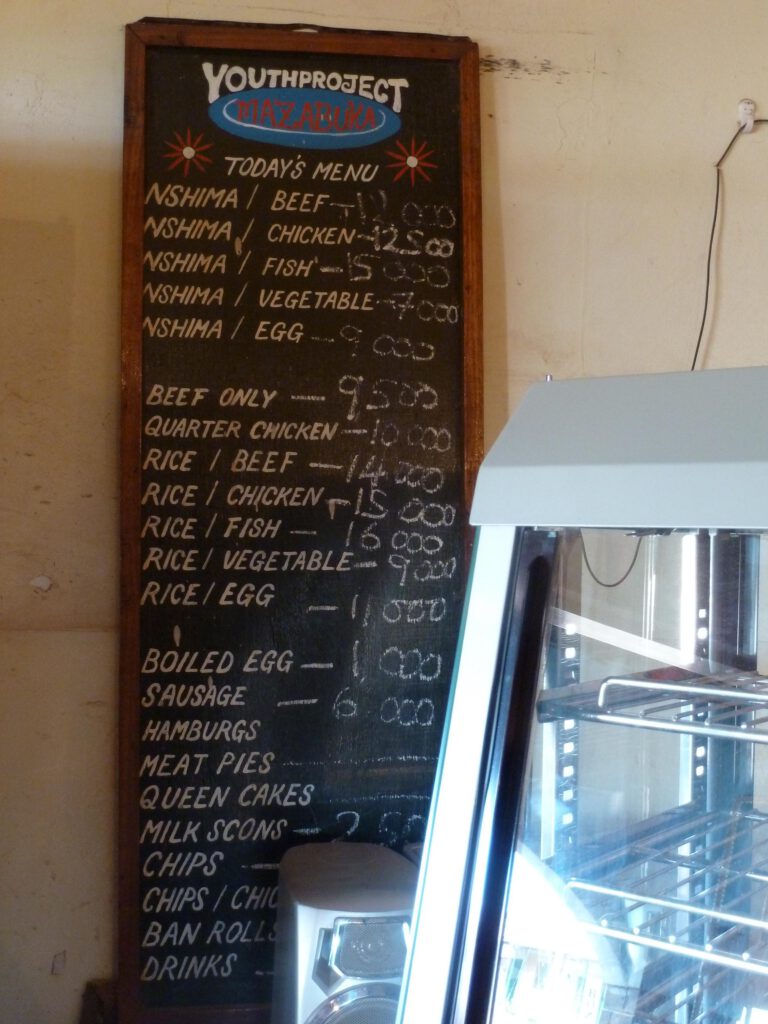 YOUTHPROJECT
MAZABUKA
TODAY'S MENU
NSHIMA / BEEF - 12 000
NSHIMA / CHICKEN - 12,500
NSHIMA / FISH - 15 000
NSHIMA / VEGETABLE - 7 000
NSHIMA / EGG - 9 000
BEEF ONLY - 9,500
QUARTER CHICKEN - 10 000
RICE / BEEF - 14 000
RICE / CHICKEN - 15 000
RICE / FISH - 16 000
RICE / VEGETABLE - 9 000
RICE / EGG - 11,000
BOILED EGG - 1,000
SAUSAGE - 6 000
HAMBURGS
MEAT PIES
QUEEN CAKES
MILK SCONS -
CHIPS -
CHIPS / CHIC
BAN ROLLS
DRINKS -